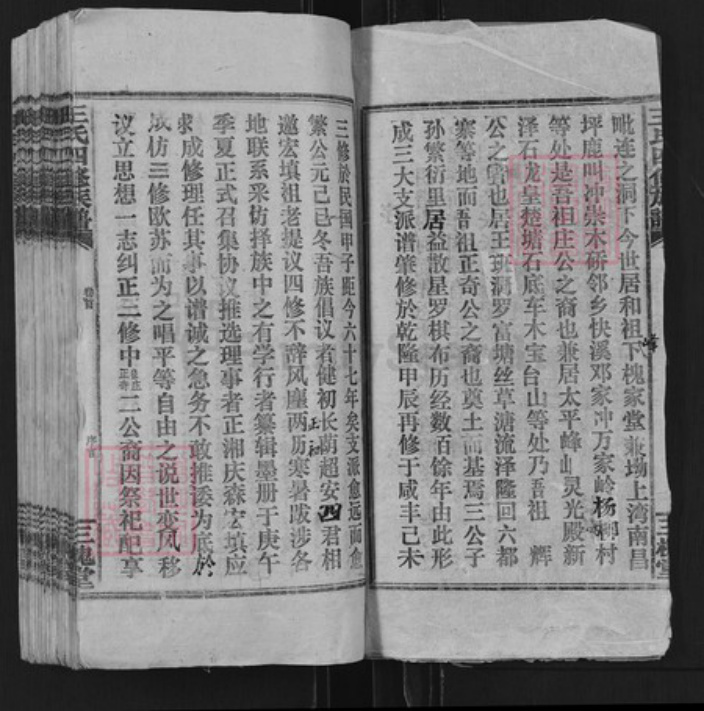 毗连之洞下今世居和祖下槐家堂兼坳上湾南昌
坪鹿叫冲柴木研邻乡快溪邓家冲万家岭杨柳村
等处是吾祖庄公之裔也兼居太平峰山灵光殿新
泽石龙皇楚塘石底车木宝台山等处乃吾祖 辉
公之裔也居王班洞罗富塘丝草溏流泽隆回六都
寨等地而吾祖正奇公之裔也奠土而基焉三公子
孙繁衍里居益散星罗棋布历经数百馀年由此形
成三大支派谱肇修於乾隆甲辰再修于咸丰己未
三修於民国甲子距今六十七年矣支派愈远而愈
繁公元己巳冬吾族倡议者健初长荫超安四君相
邀宏填祖老提议四修不辞风塵两历寒暑跋涉各
地联系采访择族中之有学行者纂辑墨册于庚午
季夏正式召集协议推选理事者正湘庆森宏填应
求成修理任其事以谱诚之急务不敢推诿为底於
成仿三修欧苏而为之唱平等自由之说世变风移
议立思想一志纠正三修中 二公裔因祭祀配享
王氏四修族譜
卷首
序言
三槐堂